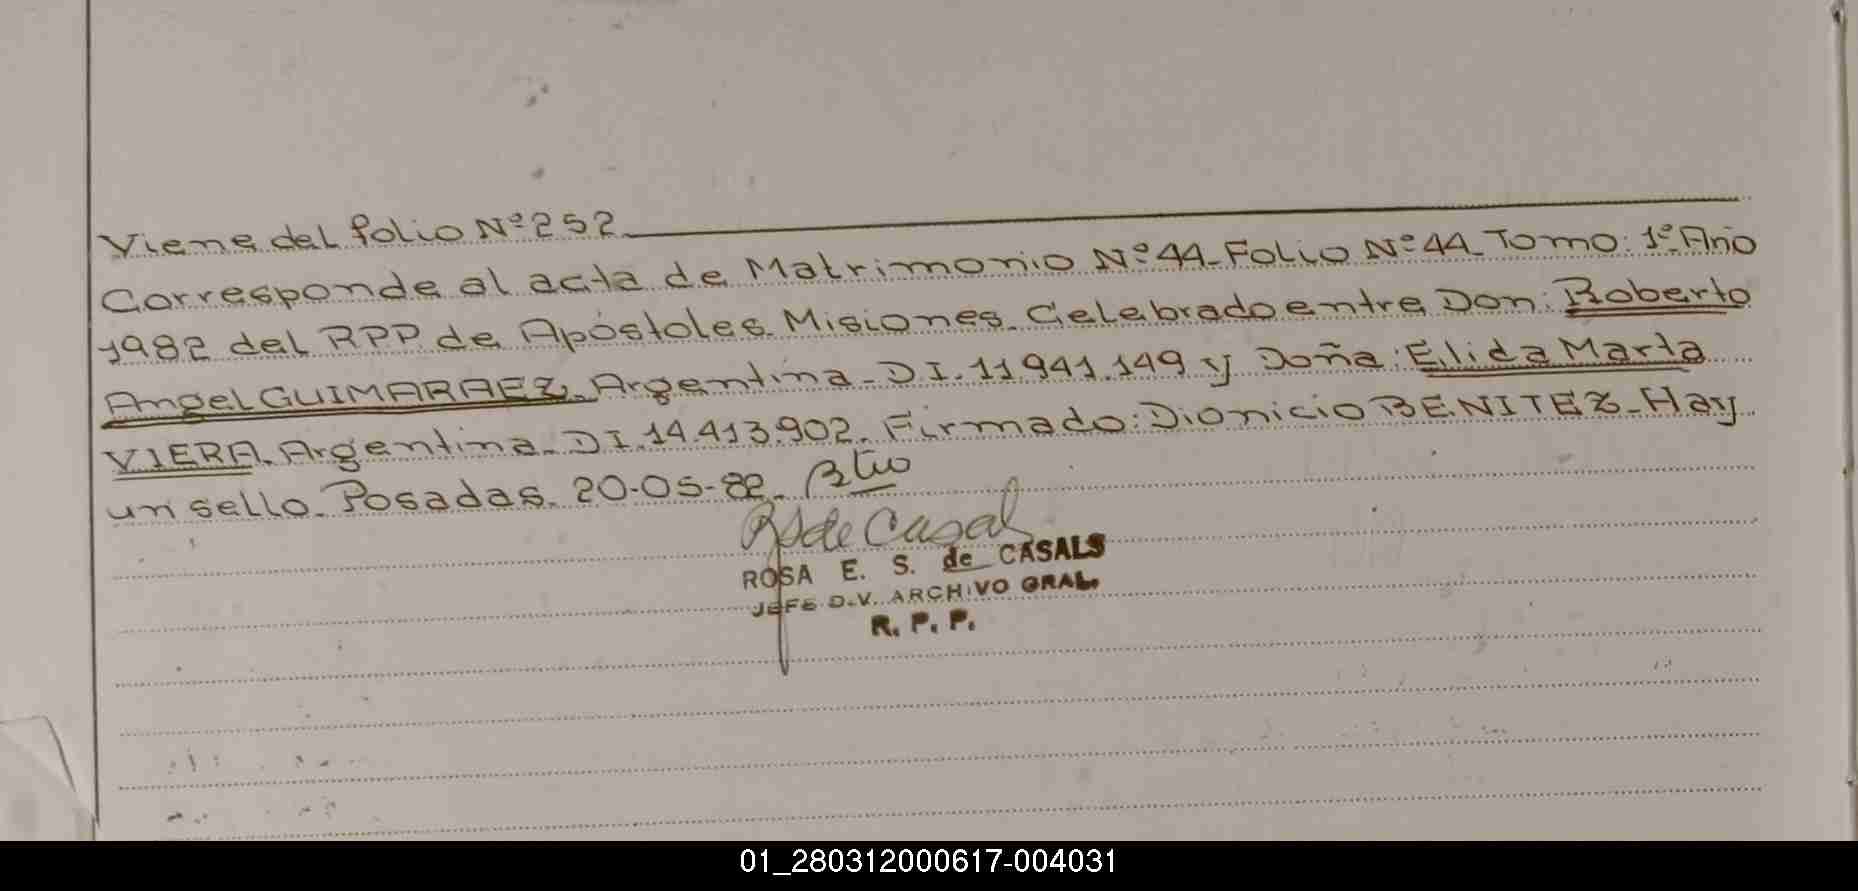 Viene del folio Nº 252
Corresponde al acta de Matrimonio Nº 44-Folio Nº 44 Tomo: 1º Año
1982 del RPP de Apóstoles Misiones. Celebrado entre Don: Roberto
Angel GUIMARAEZ, Argentina-DI.11941.149 y Doña: Elida Marta
VIERA. Argentina-DI.14.413.902. Firmado: Dionicio BENITEZ-Hay
un sello-Posadas. 20-05-82.
R S de Casals
ROSA E. S. de CASALS
JEFE D.V. ARCHIVO GRAL.
R. P. P.
01_280312000617-004031